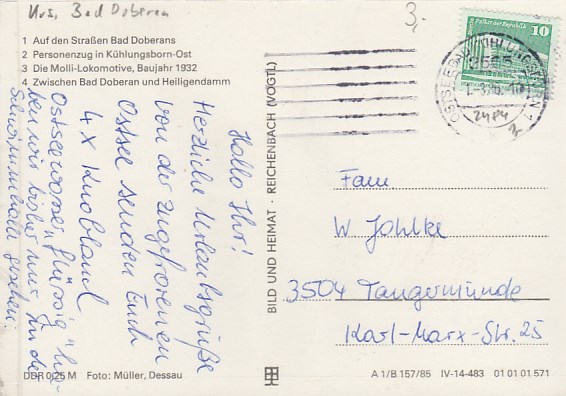 Krs. Bad Doberan
3,-
1 Auf den Straßen Bad Doberans
2 Personenzug in Kühlungsborn-Ost
3 Die Molli-Lokomotive, Baujahr 1932
4 Zwischen Bad Doberan und Heiligendamm
Hallo Ihr!
Herzliche Urlaubsgrüße
von der zugefrorenen
Ostsee senden Euch
4 x Knobland
Ostseewasser „flüssig" ha-
ben wir bisher nur in der
Schwimmhalle gesehen.
BILD UND HEIMAT · REICHENBACH (VOGTL)
Palast der Republik
10
OSTSEEBAD KÜHLUNGSBORN 1
2565
2484
Fam.
W. Jahlke
3504 Tangermünde
Karl-Marx-Str. 25
DDR 0,25 M Foto: Müller, Dessau
A 1/B 157/85 IV-14-483 01 01 01 571